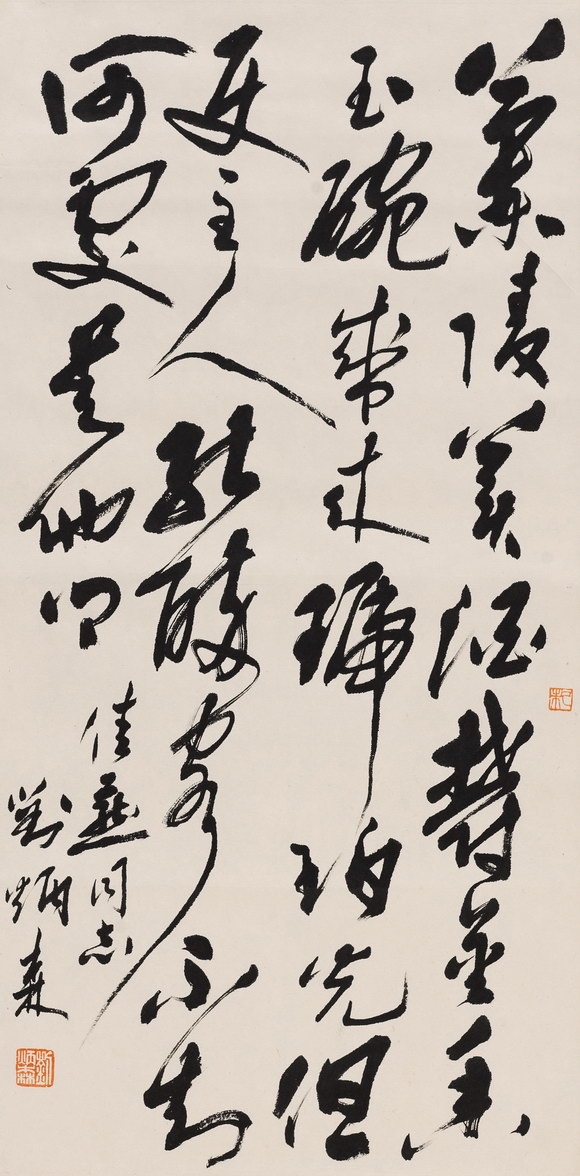 蘭陵美酒鬱金香
玉碗盛来琥珀光但
使主人能醉客不知
何處是他鄉
佳燕同志
劉炳森
劉炳森